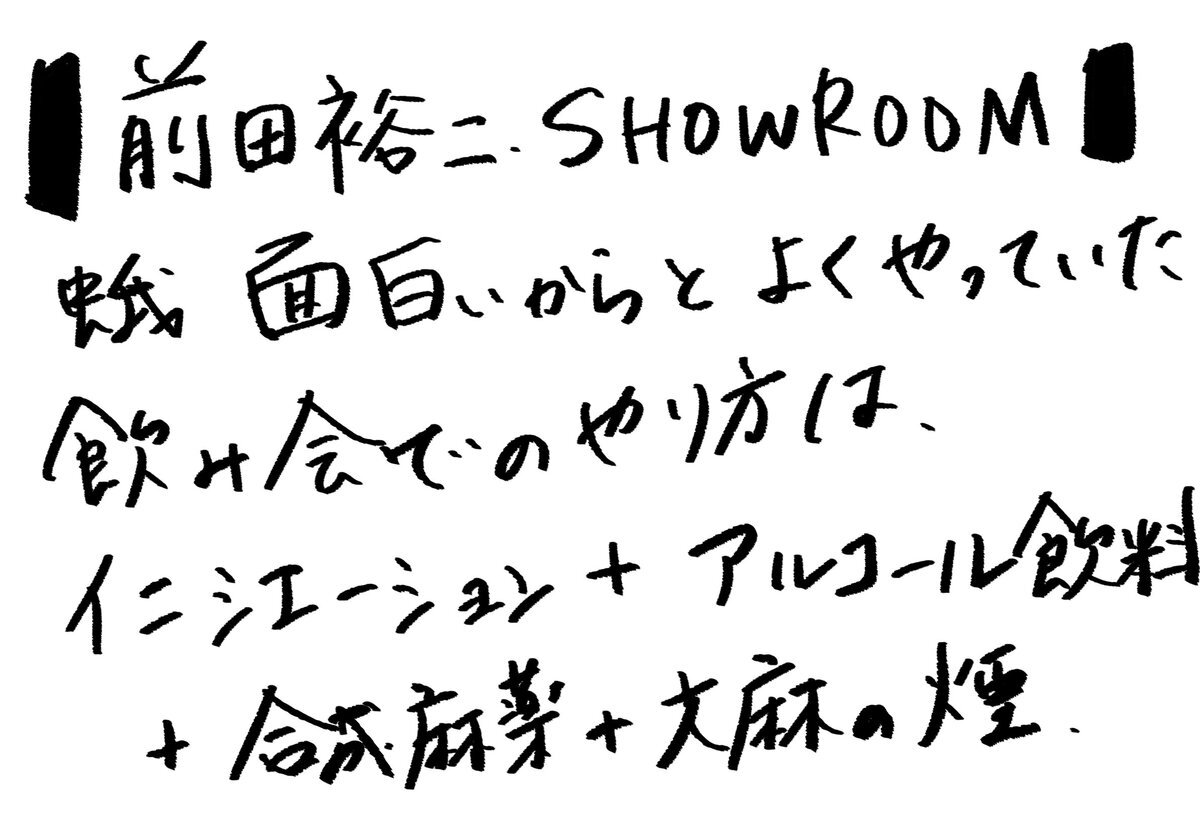 ▮前田裕二.SHOWROOM▮
蛾 面白いからと よくやっていた
飲み会でのやり方は、
イニシエーション+アルコール飲料
+合成麻薬+大麻の煙.